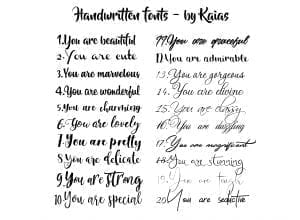 Handwritten fonts - by Kaias
1.You are beautiful
2. You are cute
3.You are marvelous
4.You are wonderful
5.You are charming
6. You are lovely
7.You are pretty
8 You are delicate
9.You are strong
10.You are special
11.You are graceful
12.You are admirable
13.You are gorgeous
14.You are divine
15.You are classy
16.You are dazzling
17.You are magnificent
18.You are stunning
19. You are
20.You are seductive